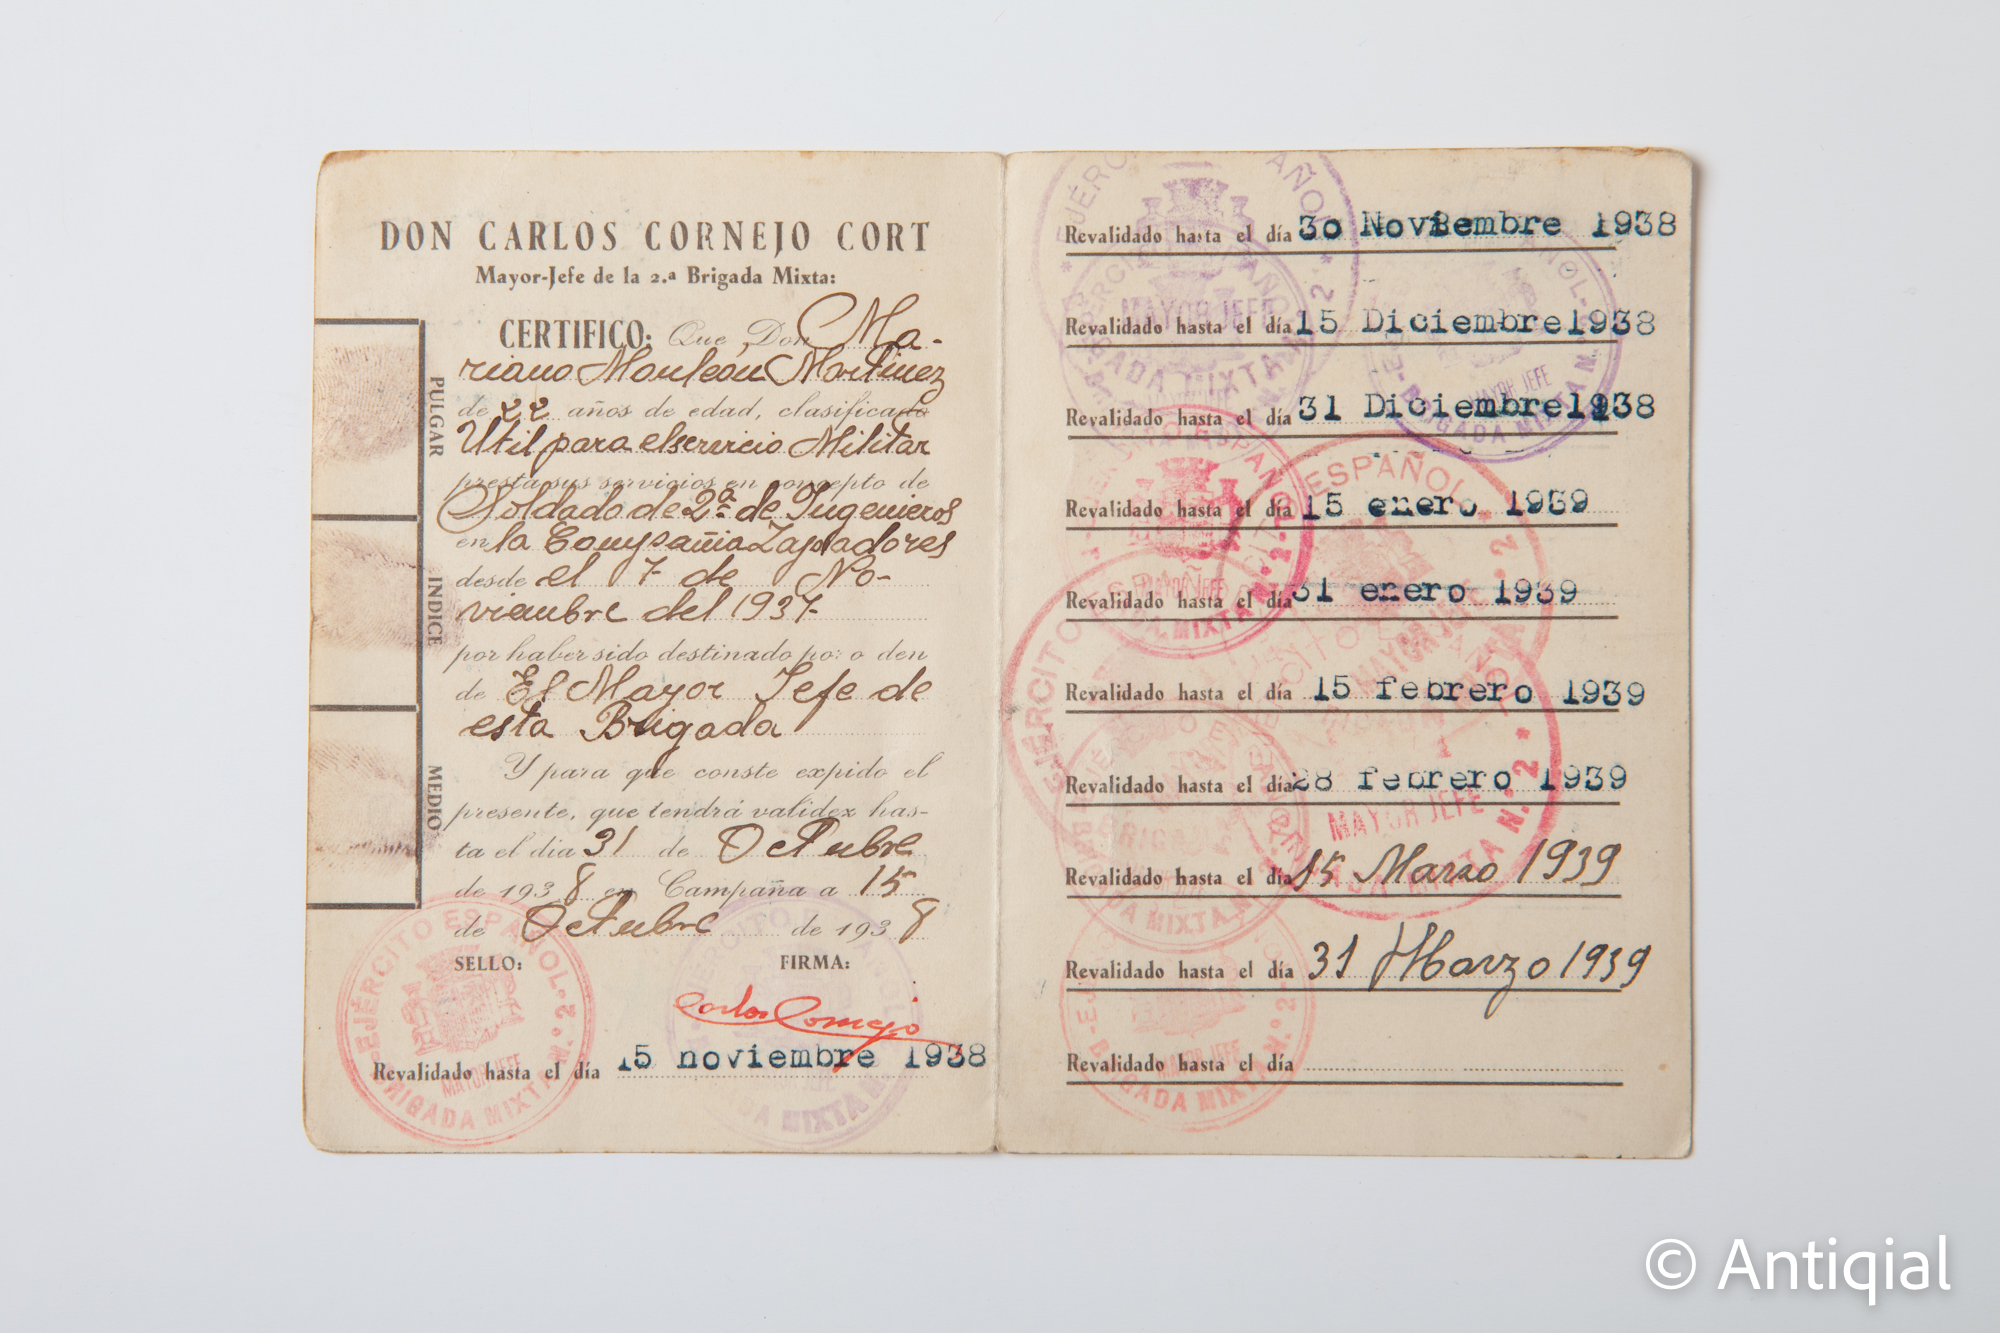 DON CARLOS CORNEJO CORT
Mayor-Jefe de la 2.ª Brigada Mixta:
CERTIFICO: Que Don Ma-
riano Monleón Martinez
de 22 años de edad, clasificado
Util para el servicio Militar
presta sus servicios en concepto de
Soldado de 2ª de Ingenieros
en la Compañia Zapadores
desde el 7 de No-
viembre del 1937
por haber sido destinado por o den
de El Mayor Jefe de
esta Brigada
Y para que conste expido el
presente, que tendrá validez has-
ta el dia 31 de Octubre
de 1938 en Campaña a 15
de Octubre de 1938
SELLO: FIRMA:
Carlos Cornejo
Revalidado hasta el día 15 noviembre 1938
PULGAR
INDICE
MEDIO
EJÉRCITO ESPAÑOL-2
BRIGADA MIXTA N.º 2
MAYOR JEFE
Revalidado hasta el día 30 Noviembre 1938
Revalidado hasta el día 15 Diciembre 1938
Revalidado hasta el día 31 Diciembre 1938
Revalidado hasta el día 15 enero 1939
Revalidado hasta el día 31 enero 1939
Revalidado hasta el día 15 febrero 1939
Revalidado hasta el día 28 febrero 1939
Revalidado hasta el día 15 Marzo 1939
Revalidado hasta el día 31 Marzo 1939
Revalidado hasta el día
MAYOR JEFE
© Antiqial